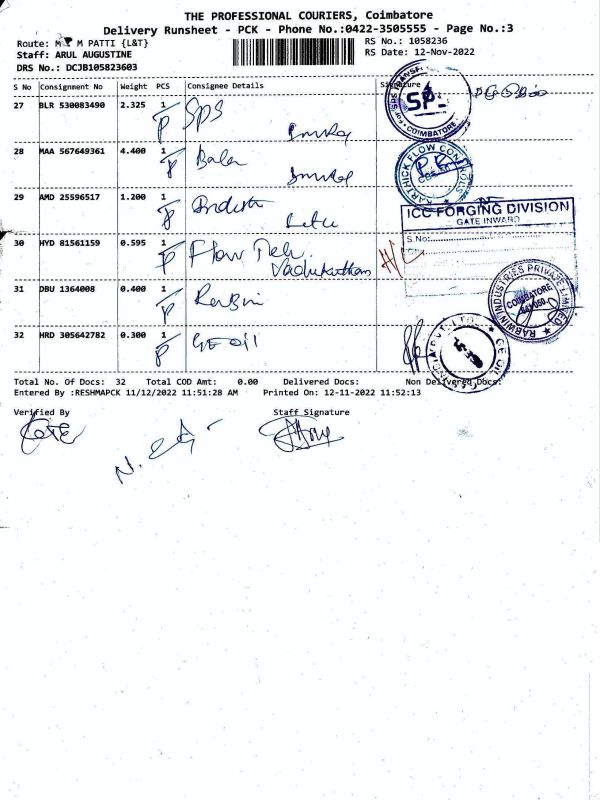 THE PROFESSIONAL COURIERS, Coimbatore
Delivery Runsheet - PCK - Phone No.:0422-3505555 - Page No.:3
Route: M M PATTI {L&T}
RS No.: 1058236
Staff: ARUL AUGUSTINE
RS Date: 12-Nov-2022
DRS No.: DCJB1058236O3
S No Consignment No Weight PCS Consignee Details Signature
27 BLR 530083490 2.325 1 SPS
P
SPS TRANSP
COIMBATORE
28 MAA 567649361 4.400 1 Bala
P
KARTHICK FLOW CONTROLS
29 AMD 25596517 1.200 1
P
ICC FORGING DIVISION
GATE INWARD
S.No:
30 HYD 81561159 0.595 1 Flow Tech
P
31 DBU 1364008 0.400 1 Rabwin
P
RABWIN INDUSTRIES PRIVATE LIMITED
COIMBATORE
32 HRD 305642782 0.300 1 GE Oil
P
Total No. Of Docs: 32 Total COD Amt: 0.00 Delivered Docs: Non Delivered Docs:
Entered By :RESHMAPCK 11/12/2022 11:51:28 AM Printed On: 12-11-2022 11:52:13
Verified By Staff Signature